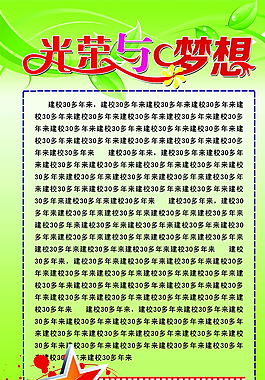 光荣与梦想
建校30多年来，建校30多年来建校30多年来建
校30多年来建校30多年来建校30多年来建校30多
年来建校30多年来建校30多年来建校30多年来建校
30多年来建校30多年来建校30多年来建校30多年来
建校30多年来 建校30多年来，建校30多年来建
校30多年来建校30多年来建校30多年来建校30多年
来建校30多年来建校30多年来建校30多年来建校30
多年来建校30多年来建校30多年来建校30多年来建
校30多年来建校30多年来 建校30多年来，建
校30多年来建校30多年来建校30多年来建校30多年
来建校30多年来建校30多年来建校30多年来建校30
多年来建校30多年来建校30多年来建校30多年来
建校30多年来建校30多年来建校30多年来 建校
30多年来，建校30多年来建校30多年来建校30多年
来建校30多年来建校30多年来建校30多年来建校30
多年来建校30多年来建校30多年来建校30多年来建
校30多年来建校30多年来建校30多年来建校30多年
来 建校30多年来，建校30多年来建校30多年来
建校30多年来建校30多年来建校30多年来建校30多年来
30多年来建校30多年来建校30多年来建校30多年来
建校30多年来建校30多年来建校30多年来建校30
多年来建校30多年来